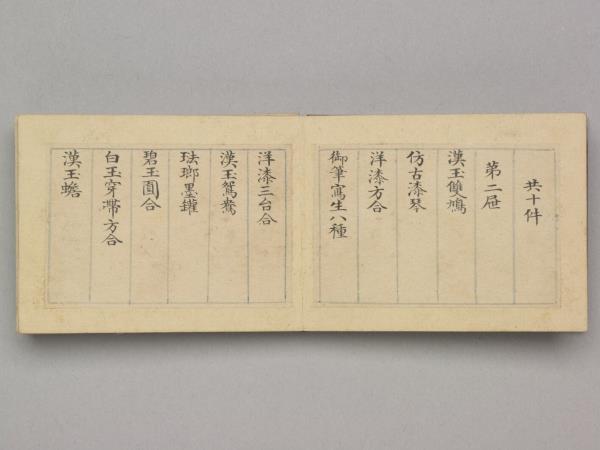 共十件
第二屜
漢玉雙鳩
仿古漆琴
洋漆方合
御筆寫生八種
洋漆三台合
漢玉鴛鴦
琺瑯墨罐
碧玉圓合
白玉穿帶方合
漢玉蟾